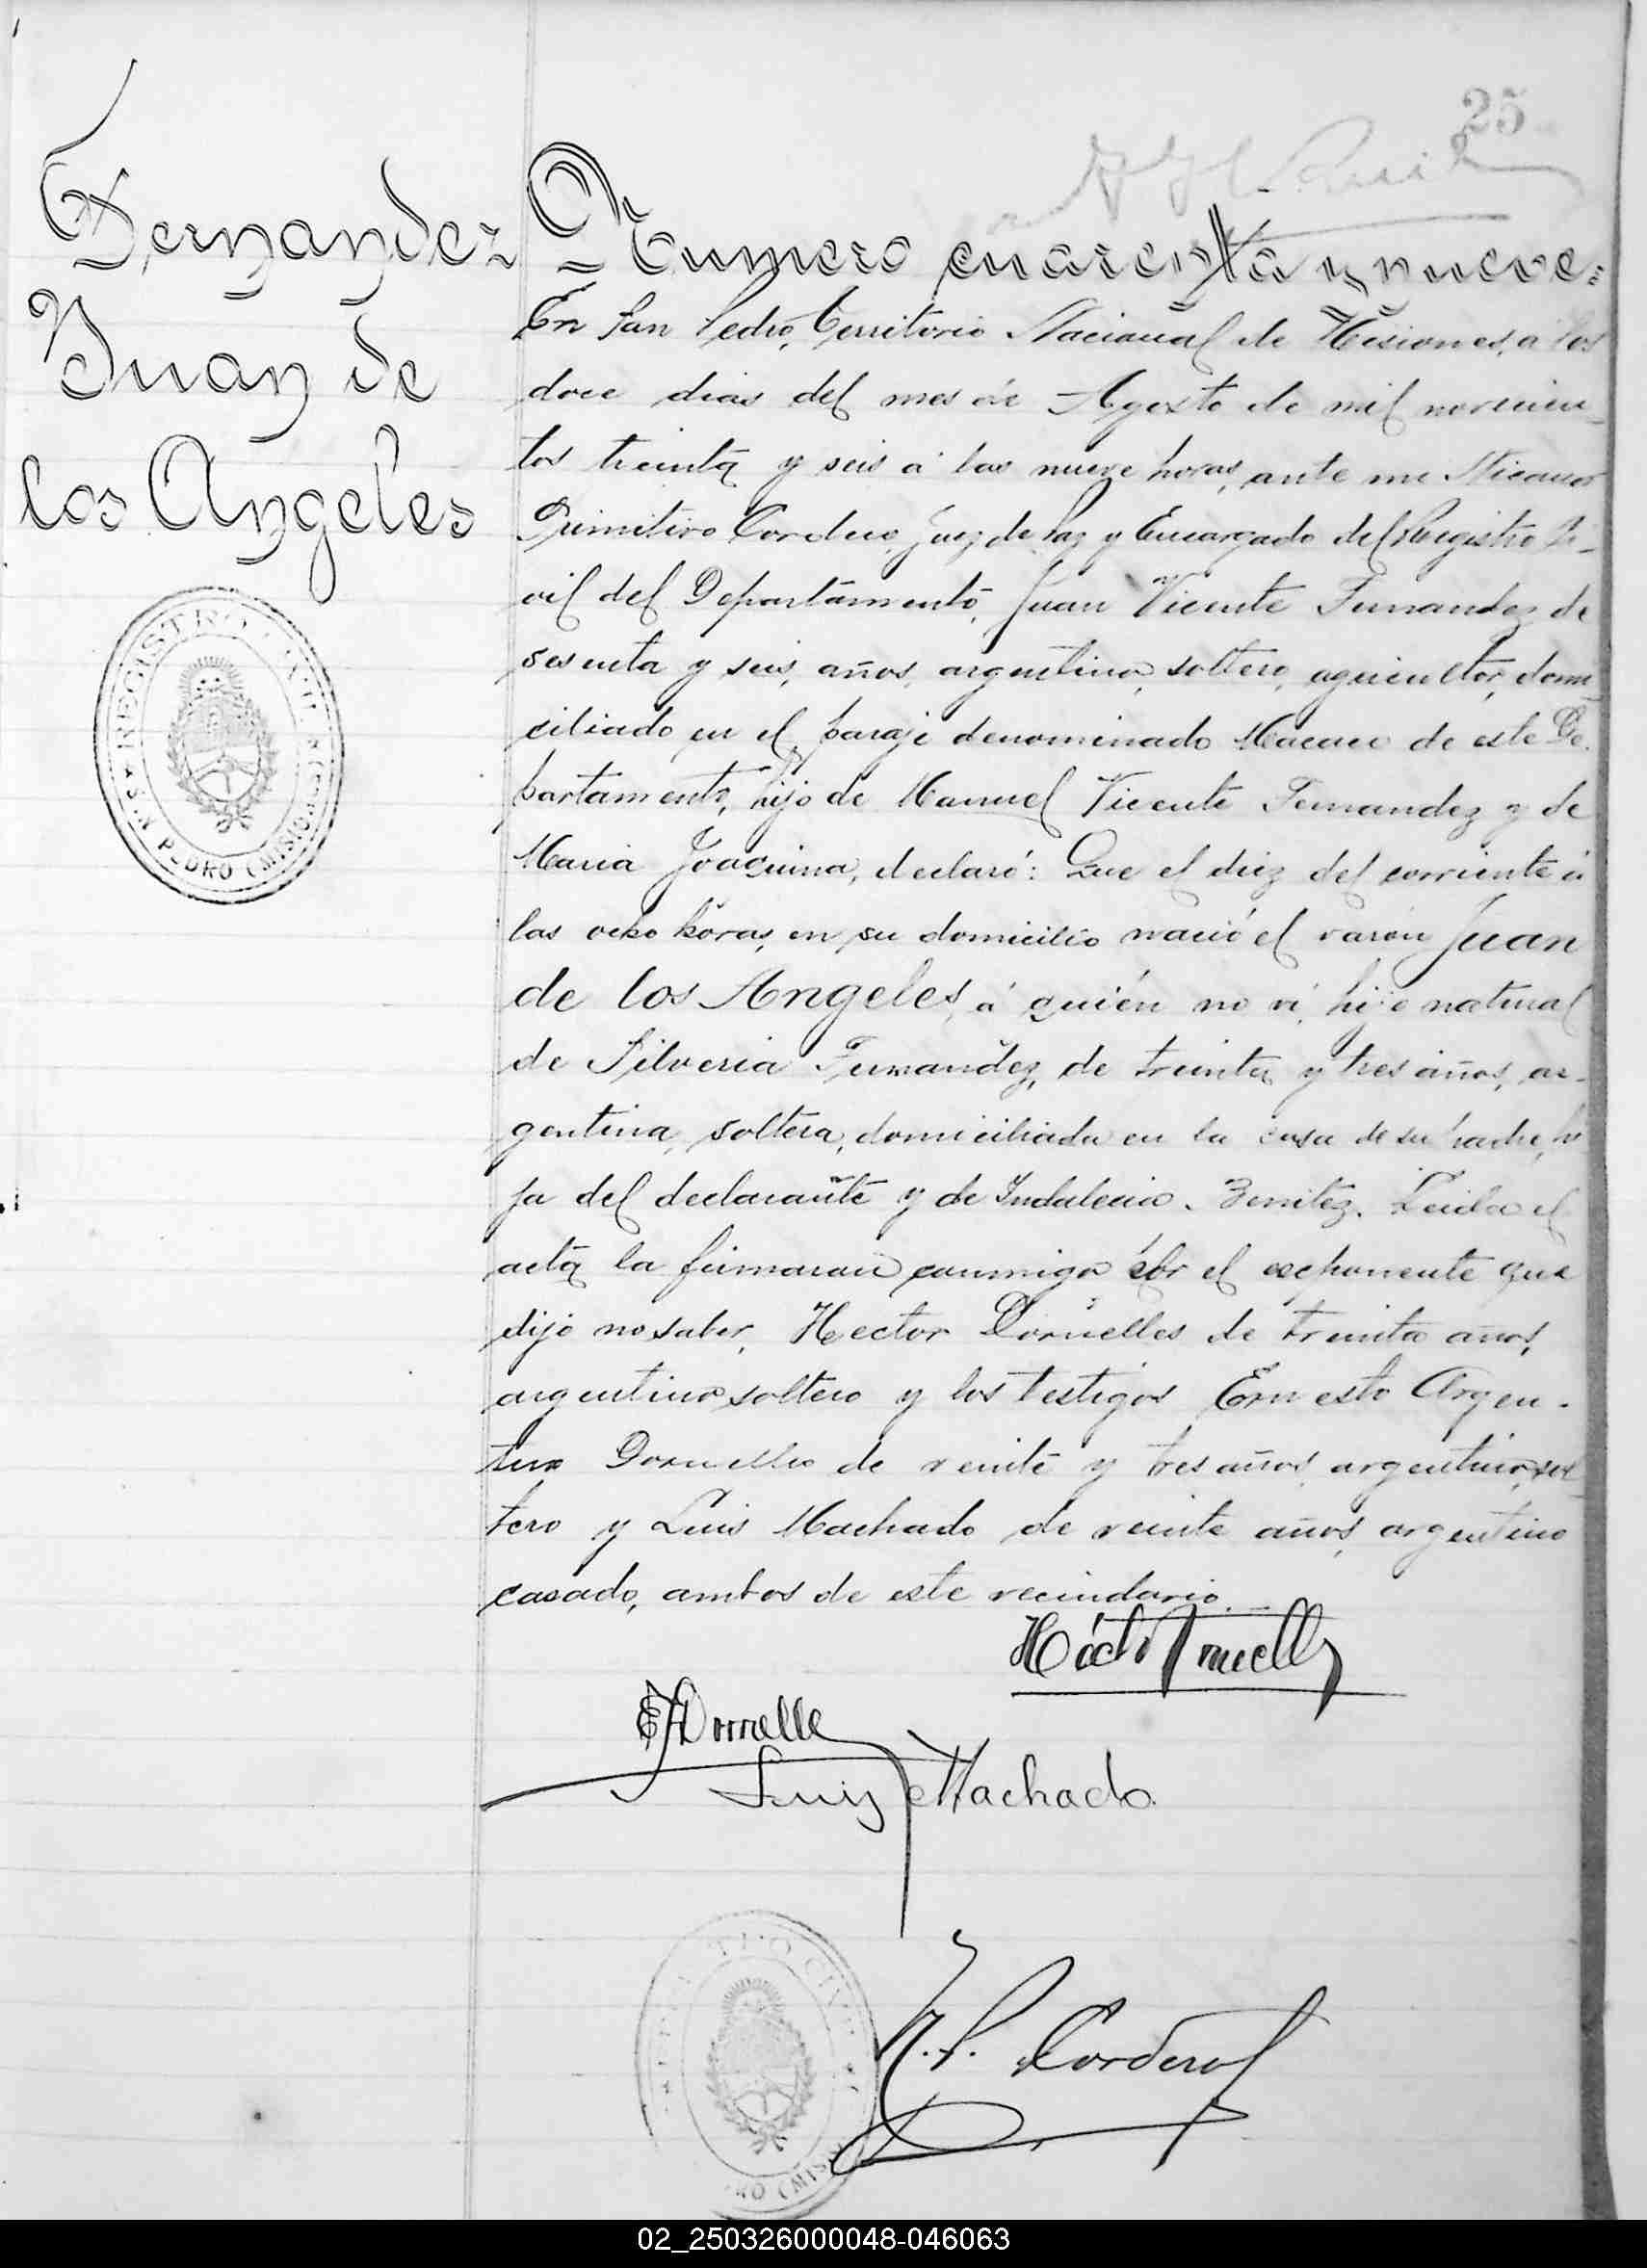 25
Fernandez
Juan de
los Angeles
REGISTRO CIVIL
SAN PEDRO (MISIONES)
Numero cuarenta y nueve=
En San Pedro, Territorio Nacional de Misiones, a los
doce dias del mes de Agosto de mil novecien-
tos treinta y seis á las nueve horas, ante mi Nicanor
Primitivo Cordero, Juez de Paz y Encargado del Registro Ci-
vil del Departamento, Juan Vicente Fernandez de
sesenta y seis, años, argentino, soltero, agricultor, domi-
ciliado en el paraje denominado Macaco de este De-
partamento, hijo de Manuel Vicente Fernandez y de
Maria Joaquina, declaró: Que el diez del corriente á
las ocho horas, en su domicilio nació el varón Juan
de los Angeles, á quién no ví, hijo natural
de Silveria Fernandez, de treinta y tres años, ar-
gentina, soltera, domiciliada en la casa de su padre, hi
ja del declarante y de Indalecia Benitez. Leida el
acta la firmaron conmigo por el exponente que
dijo no saber, Hector Dornelles de treinta años,
argentino soltero y los testigos Ernesto Argen-
tino Dornelles de veinte y tres años, argentino, sol-
tero y Luis Machado de veinte años, argentino
casado, ambos de este vecindario.
E A Dornelle
Luis Machado
N. P. Cordero
02_250326000048-046063